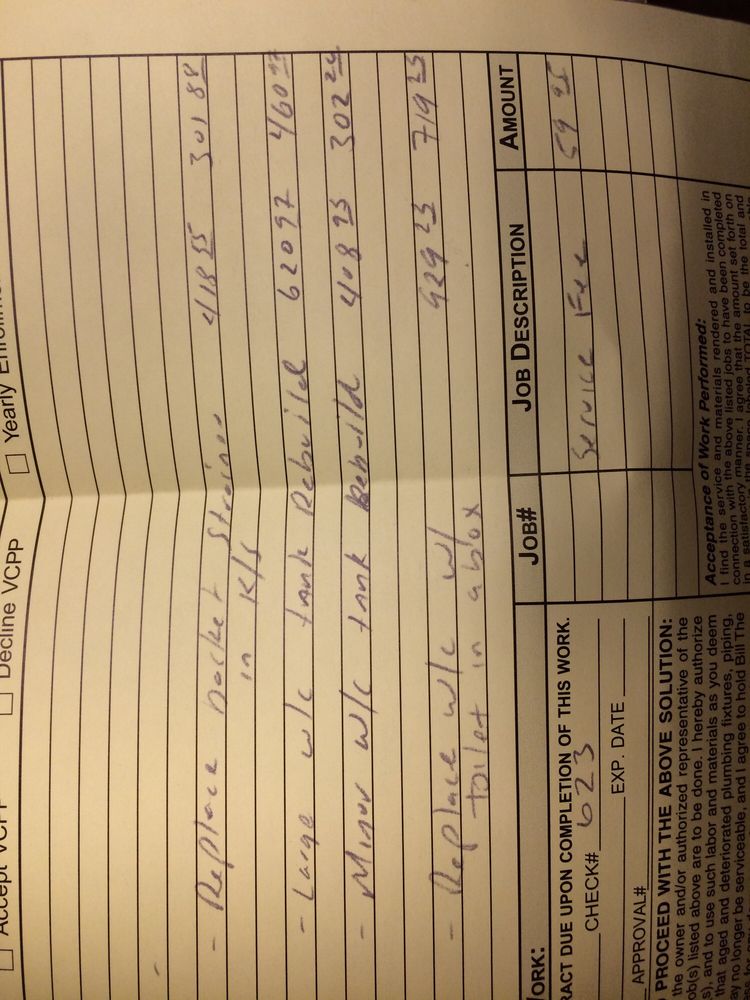 Accept VCPP Decline VCPP Yearly
- Replace basket strainer 418 55 301 88
in K/S
- Large w/c tank Rebuild 620 97 460 97
- Minor w/c tank Rebuild 408 93 302 24
- Replace w/c w/ 929 23 719 23
toilet in a box
ORK: JOB# JOB DESCRIPTION AMOUNT
RACT DUE UPON COMPLETION OF THIS WORK. Service Fee 59 95
CHECK# 623
EXP. DATE
APPROVAL#
PROCEED WITH THE ABOVE SOLUTION:
the owner and/or authorized representative of the
ob(s) listed above are to be done. I hereby authorize
s), and to use such labor and materials as you deem
that aged and deteriorated plumbing fixtures, piping,
y no longer be serviceable, and I agree to hold Bill The
Acceptance of Work Performed:
I find the service and materials rendered and installed in
connection with the above listed jobs to have been completed
in a satisfactory manner. I agree that the amount set forth on
to be the total and